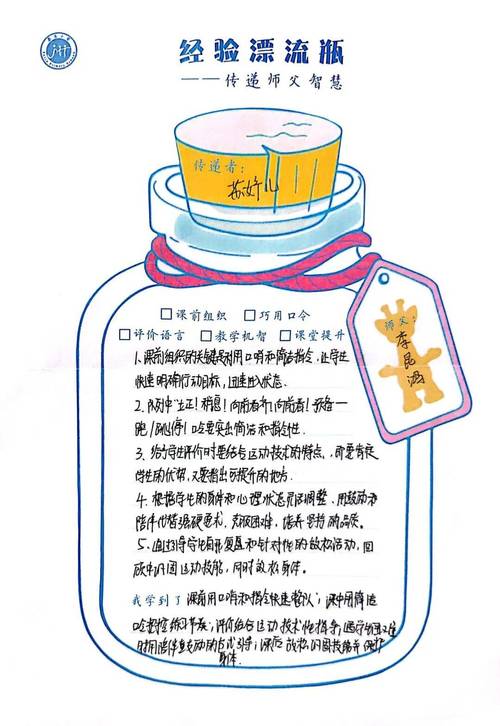 经验漂流瓶
——传递师父智慧
传递者：
苏妤儿
师父：
李昆鸿
□课前组织 □巧用口令
□评价语言 □教学机智 □课堂提升
1. 课前组织的关键是利用口哨和简洁指令，让学生
快速明确行动目标，迅速进入状态.
2. 队列中"立正！稍息！向前看齐！向前看！
跑/跳/停！口令要突出简洁和指令性.
3. 给予学生评价时要结合运动技术的特点，即要肯定
学生的优点，又要指出可提升的地方.
4. 根据学生的身体和心理状态灵活调整，用鼓励和
陪伴代替强硬要求，克服困难，培养坚持的品质。
5. 通过引导学生自我复盘和针对性的放松活动，回
顾中巩固运动技能，同时放松身体。
我学到了 课前用口哨和指令快速整队；课中用简洁
口令把控练习节奏；评价结合运动技术性指导；遇
时用陪伴鼓励的方式引导；课后放松巩固技能
身体.